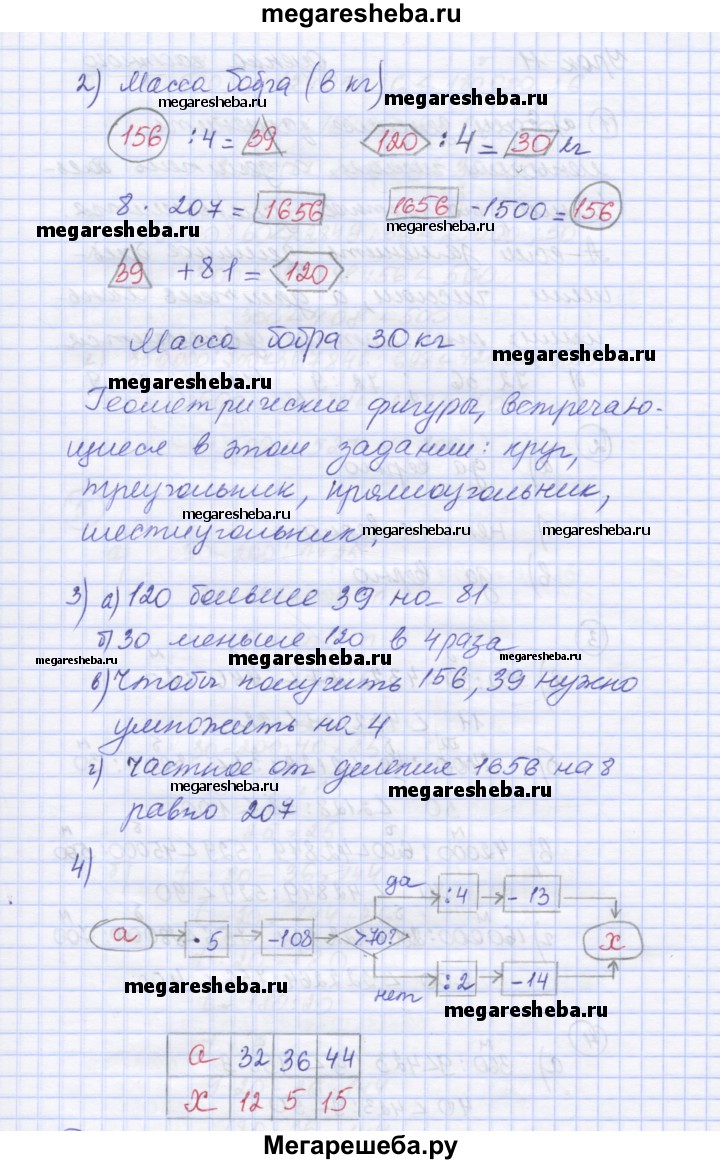 megaresheba.ru
2) Масса бобра (в кг)
megaresheba.ru megaresheba.ru
156 : 4 = 39 120 : 4 = 30 кг
8 · 207 = 1656 1656 - 1500 = 156
megaresheba.ru megaresheba.ru
39 + 81 = 120
Масса бобра 30 кг
megaresheba.ru
megaresheba.ru
Геометрические фигуры, встречаю-
щиеся в этом задании: круг,
треугольник, прямоугольник,
megaresheba.ru
шестиугольник.
megaresheba.ru megaresheba.ru
3) а) 120 больше 39 на 81
б) 30 меньше 120 в 4 раза
megaresheba.ru megaresheba.ru megaresheba.ru
в) Чтобы получить 156, 39 нужно
умножить на 4
г) Частное от деления 1656 на 8
megaresheba.ru megaresheba.ru
равно 207
4)
да :4 - 13
а · 5 -108 >70? х
нет :2 -14
megaresheba.ru megaresheba.ru
а 32 36 44
х 12 5 15
Мегарешеба.ру